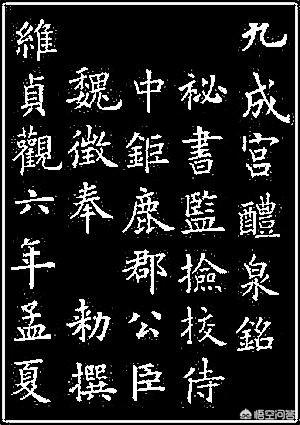 九成宮醴泉銘
秘書監撿挍侍
中鉅鹿郡公臣
魏徵奉 勑撰
維貞觀六年孟夏
悟空问答